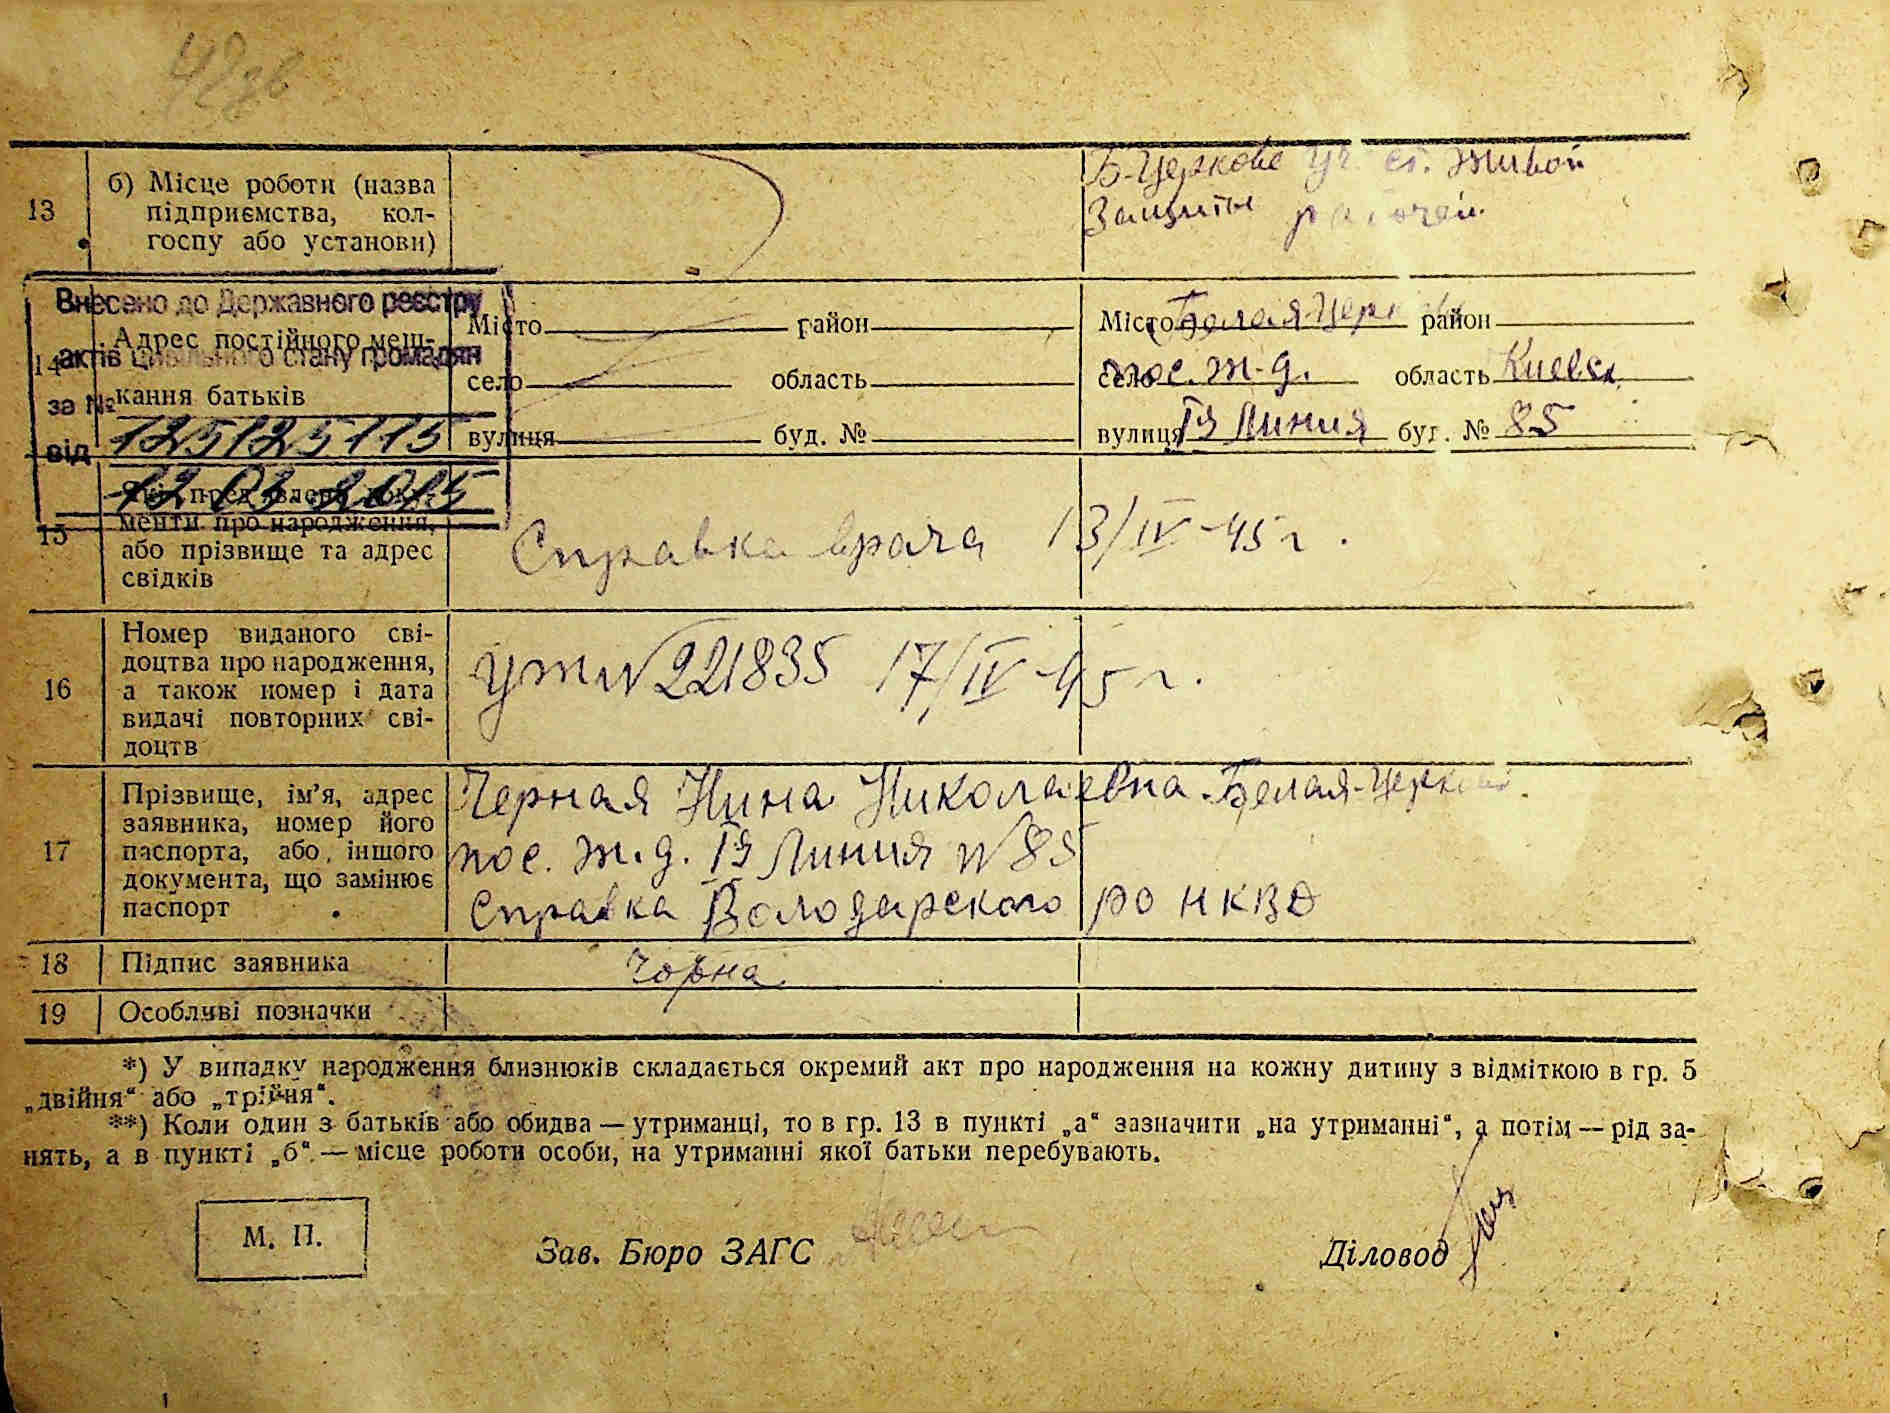 42 зв
13
б) Місце роботи (назва
підприємства, кол-
госпу або установи)
Б-Церкове уч. ст. живой
Защиты рабочей
Внесено до Державного реєстру
актів цивільного стану громадян
за № 125125115
від 12 03 2015
14
Адрес постійного меш-
кання батьків
Місто район
село область
вулиця буд. №
Місто Белая-Церковь район
село пос. ж.д. область Киевск
вулиця IЯ Линия буд. № 85
15
Які пред'явлено доку-
менти про народження,
або прізвище та адрес
свідків
Справка врача 13/IV-45 г.
16
Номер виданого сві-
доцтва про народження,
а також номер і дата
видачі повторних сві-
доцтв
УЖ № 221835 17/IV-45 г.
17
Прізвище, ім'я, адрес
заявника, номер його
паспорта, або іншого
документа, що замінює
паспорт
Черная Нина Николаевна Белая-Церковь.
пос. ж.д. IЯ Линия № 85
Справка Володарского РО НКВД
18
Підпис заявника
Чорна
19
Особливі позначки
*) У випадку народження близнюків складається окремий акт про народження на кожну дитину з відміткою в гр. 5
„двійня“ або „трійня“.
**) Коли один з батьків або обидва — утриманці, то в гр. 13 в пункті „а“ зазначити „на утриманні“, а потім — рід за-
нять, а в пункті „б“ — місце роботи особи, на утриманні якої батьки перебувають.
М. П.
Зав. Бюро ЗАГС
Діловод